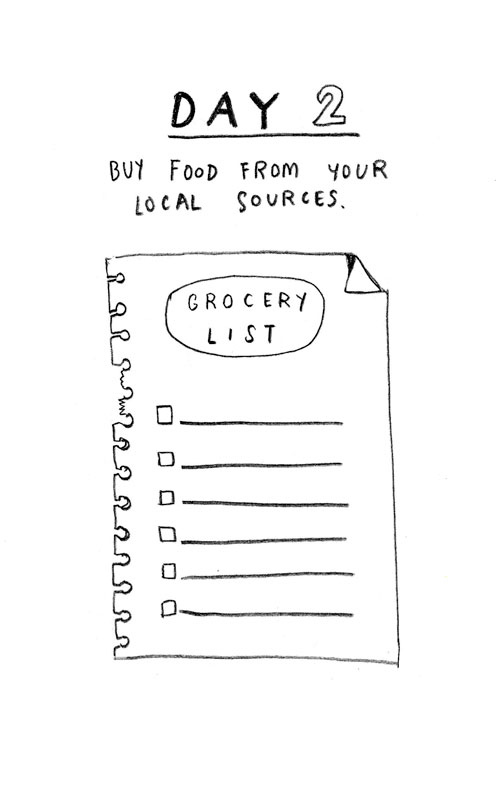 DAY 2
BUY FOOD FROM YOUR
LOCAL SOURCES.
GROCERY
LIST